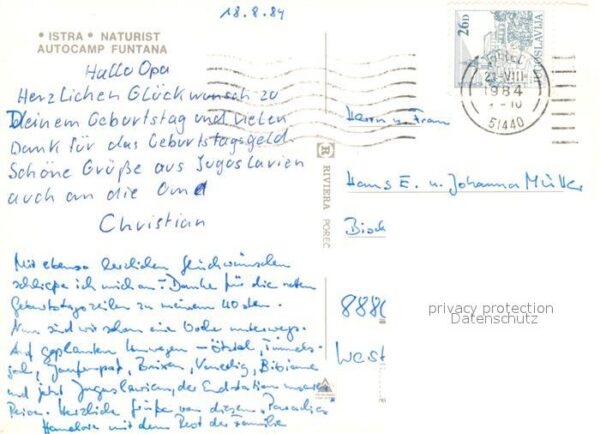 18.8.84
• ISTRA • NATURIST
AUTOCAMP FUNTANA
Hallo Opa
Herzlichen Glückwunsch zu
Deinem Geburtstag und vielen
Dank für das Geburtstagsgeld.
Schöne Grüße aus Jugoslavien
auch an die Oma
Christian
Mit ebenso herzlichen Glückwünschen
schließe ich mich an. Danke für die
Geburtstagszeilen zu meinem 40sten.
Nun sind wir schon eine Woche unterwegs.
Auf geplanten Umwegen - Ötztal, Timmels-
joch, Jaufenpaß, Brixen, Venedig, Bibione
und jetzt Jugoslavien, der Endstation unserer
Reise. Herzliche Grüße von diesem Paradies
Hannelore mit dem Rest der Familie
26D
JUGOSLAVIJA
VIII
1984
51440
Herrn u. Frau
Hans E. u. Johanna Müller
888
West
R RIVIERA POREČ
privacy protection
Datenschutz